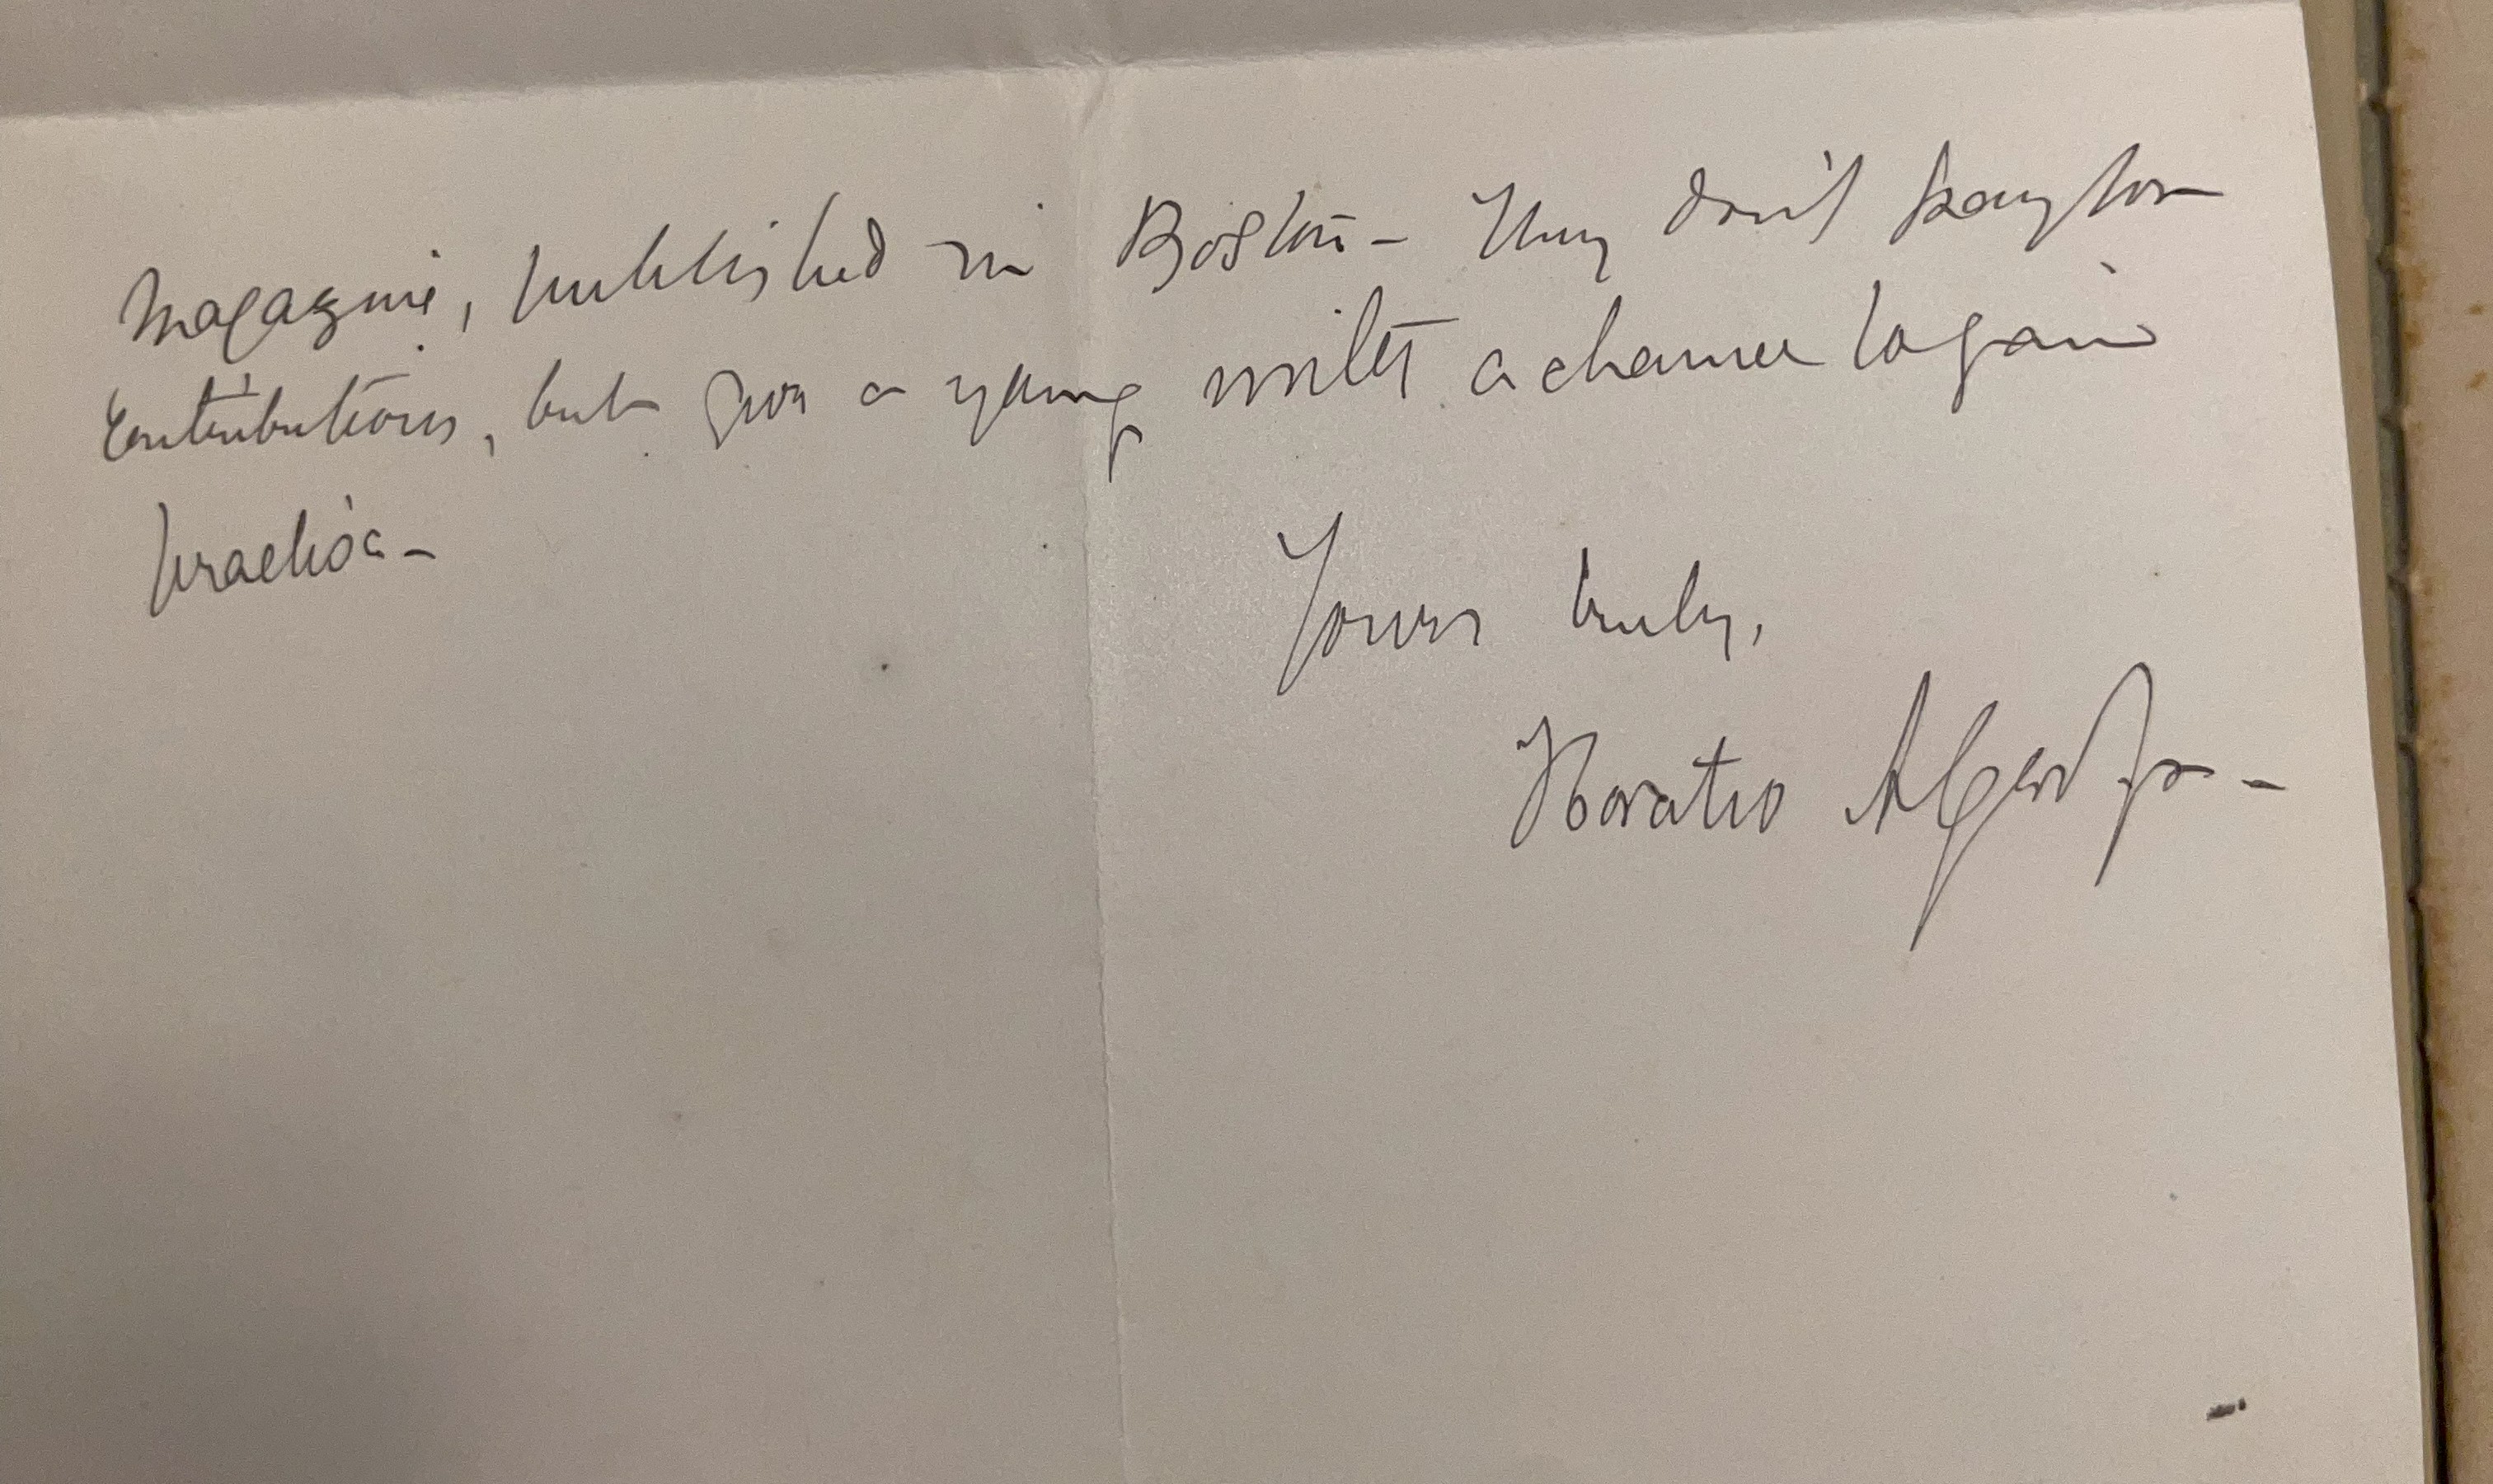 Magazine, published in Boston - They don't pay for
contributions, but give a young writer a chance to gain
practice -
Yours truly,
Horatio Alger Jr -